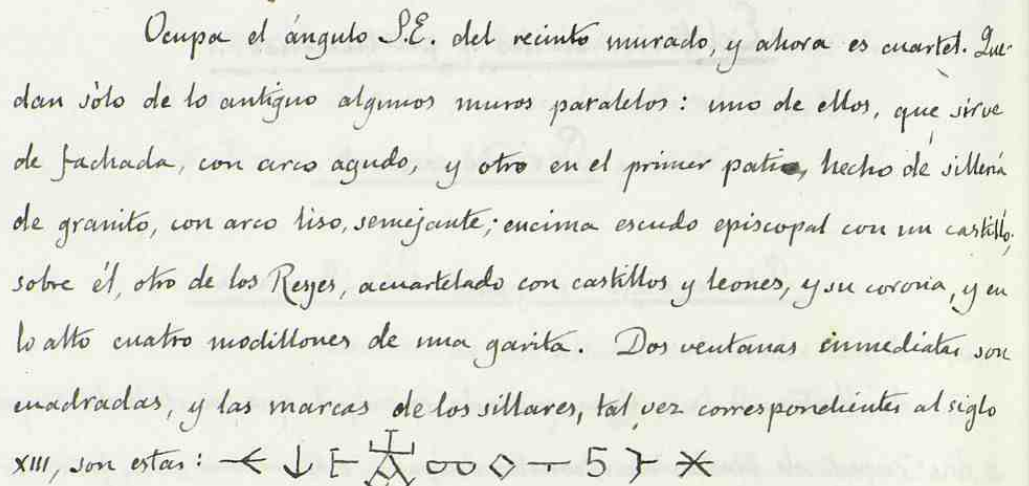 Ocupa el ángulo S.E. del recinto murado, y ahora es cuartel. Que-
dan sólo de lo antiguo algunos muros paralelos: uno de ellos, que sirve
de fachada, con arco agudo, y otro en el primer patio, hecho de sillería
de granito, con arco liso, semejante; encima escudo episcopal con un castillo;
sobre él, otro de los Reyes, acuartelado con castillos y leones, y su corona, y en
lo alto cuatro modillones de una garita. Dos ventanas inmediatas son
cuadradas, y las marcas de los sillares, tal vez correspondientes al siglo
XIII, son estas: